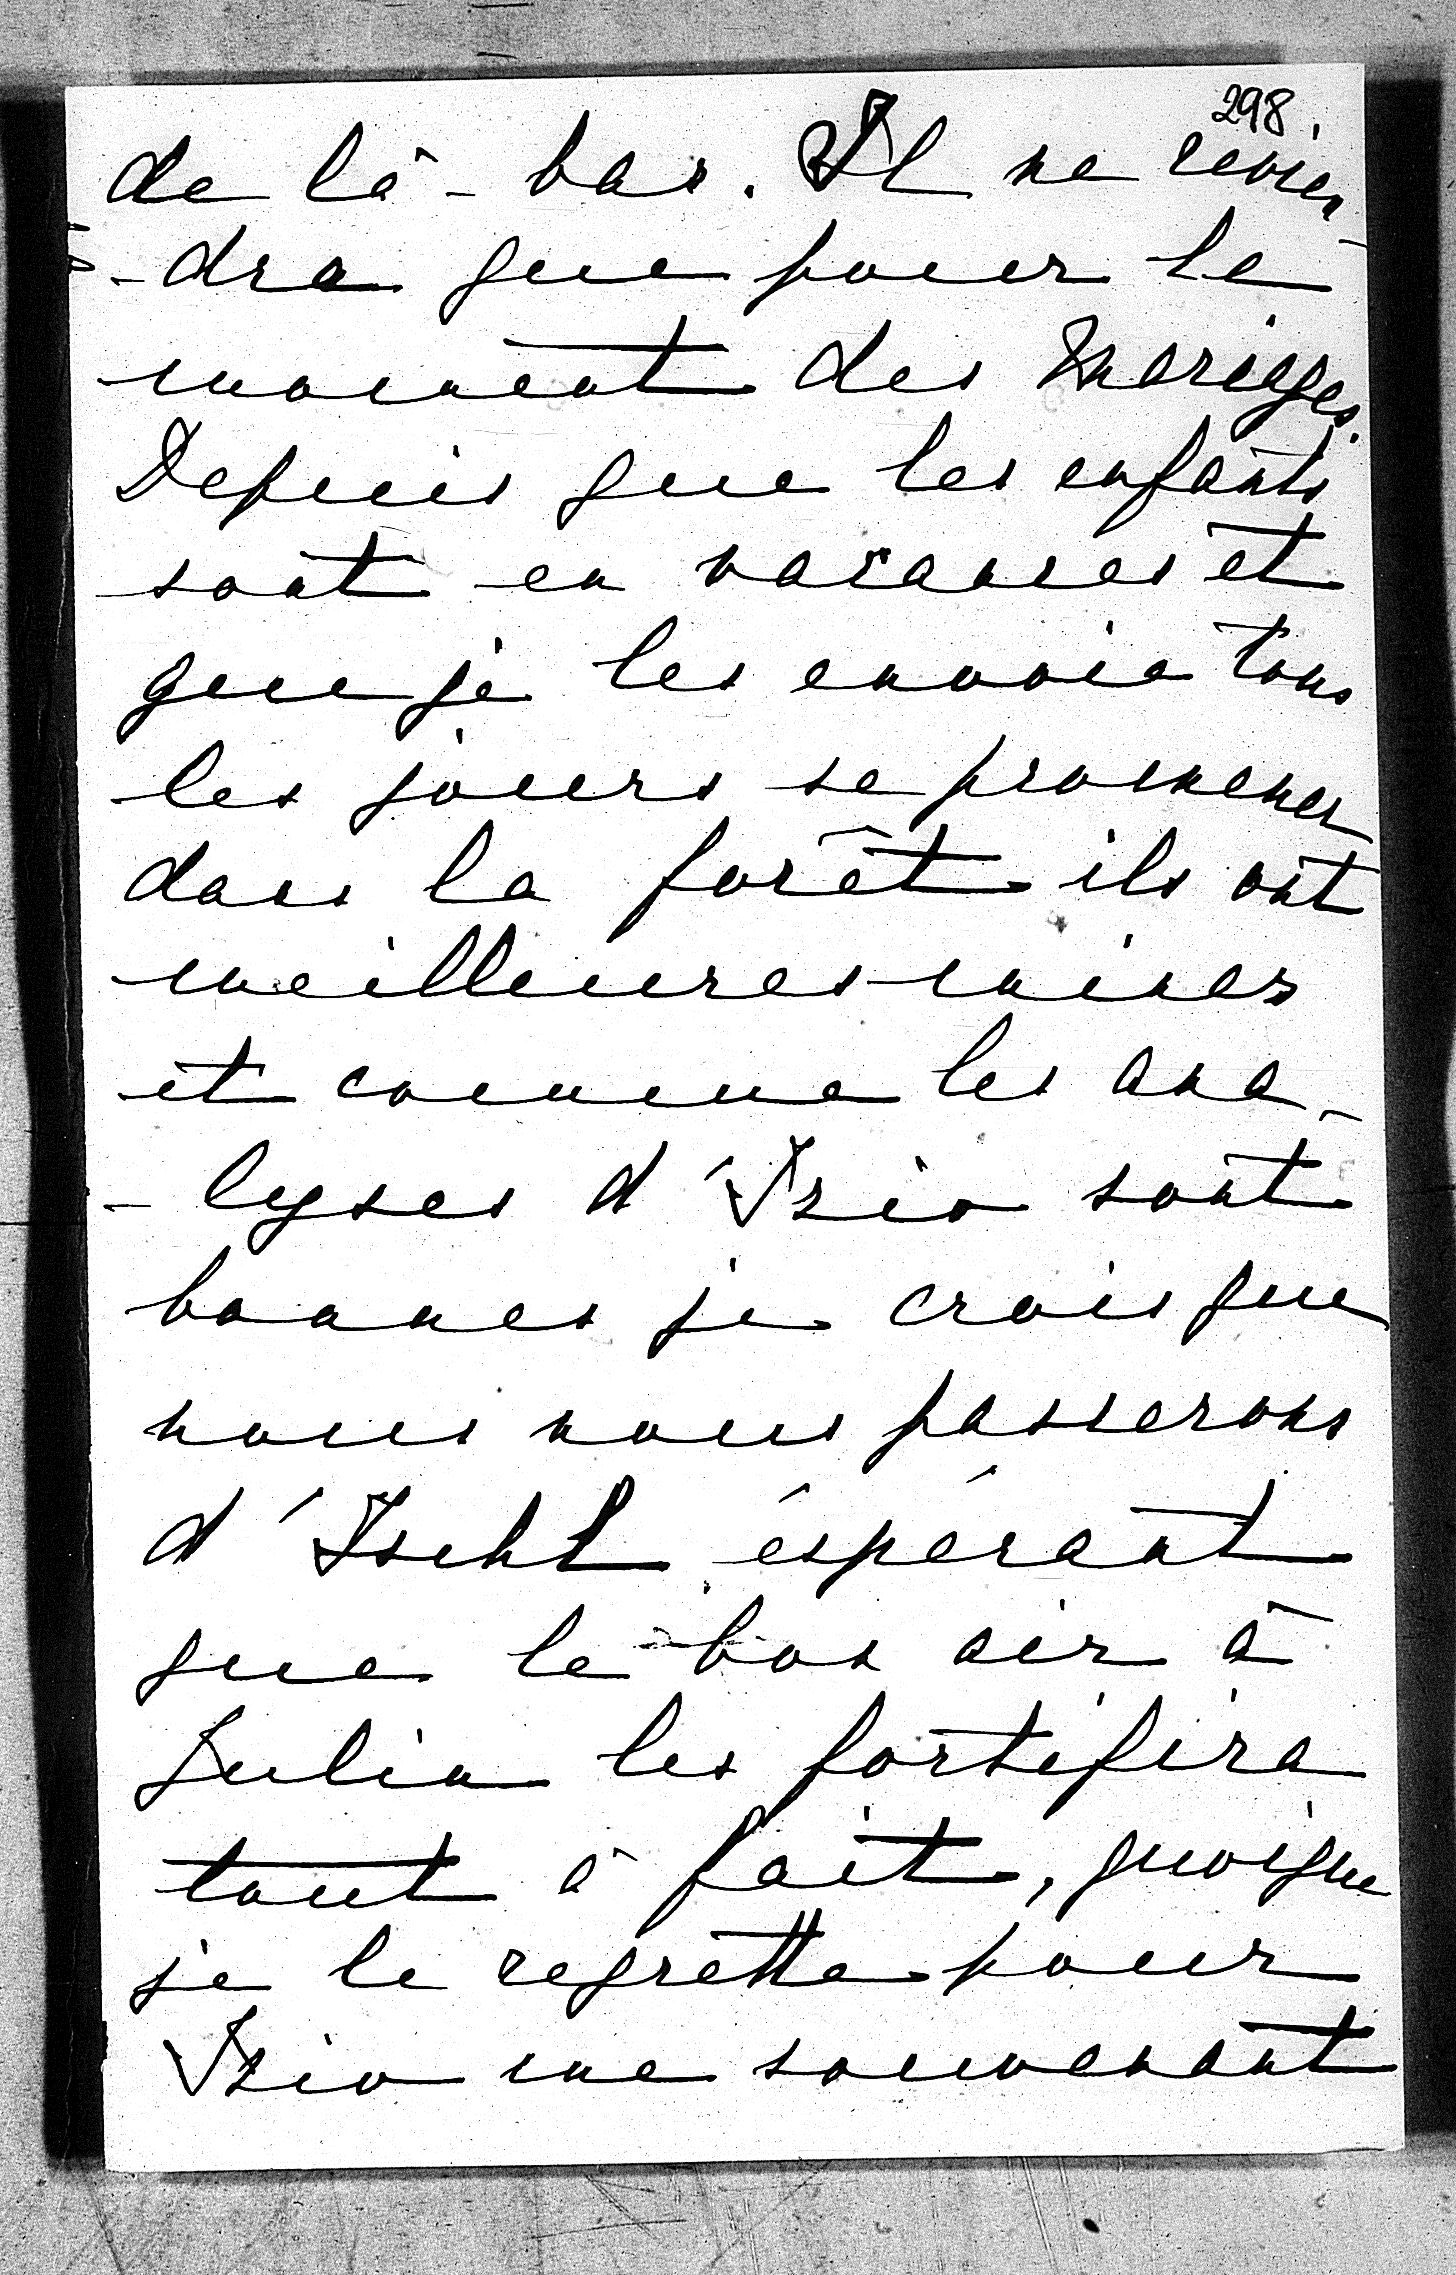 298.
de là-bas. Il ne revien
-dra que pour le
moment des mariages.
Depuis que les enfants
sont en vacances et
que je les envoie tous
les jours se promener
dans la forêt ils ont
meilleures mines
et comme les ana-
-lyses d'Izio sont
bonnes je crois que
nous nous passerons
d'Ischl éspérant
que le bon air à
Julin les fortifira
tout à fait, quoique
je le regrette pour
Izio me souvenant